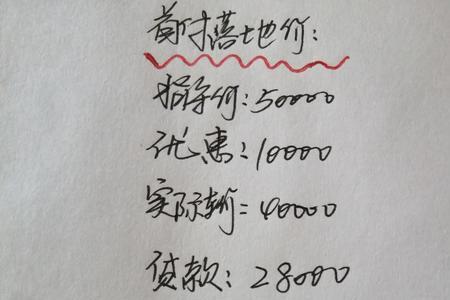 落地价:
指导价:50000
优惠:10000
实际车价=40000
贷款:28000